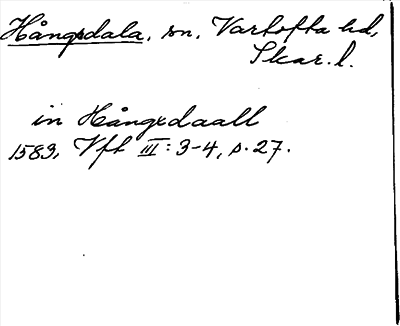 Hångsdala, sn, Vartofta hd,
Skar. l.
in Hångxdaall
1583, Vft III: 3-4, s. 27.